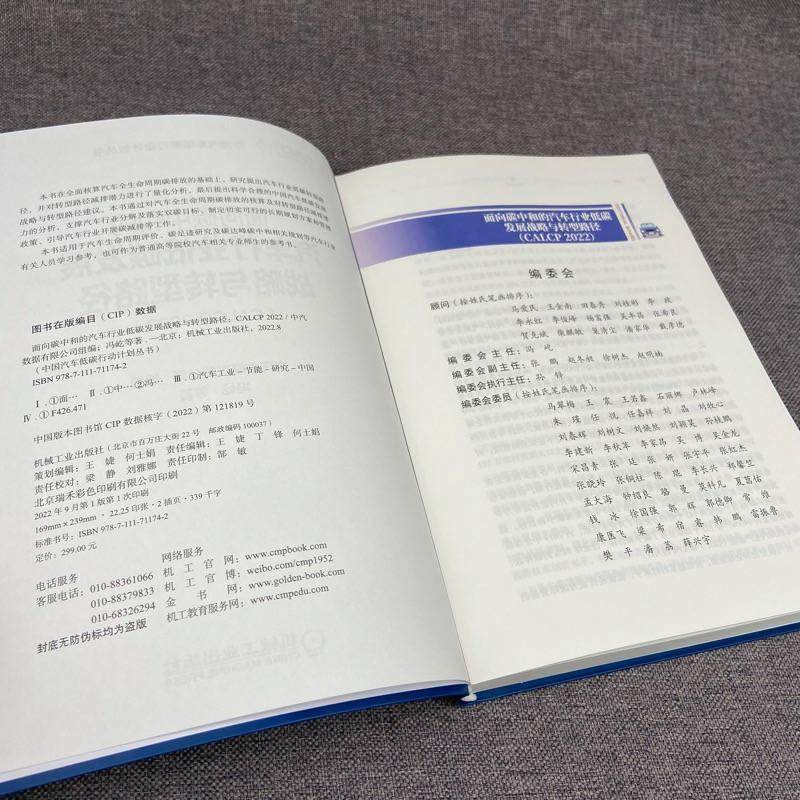 本书在全面核算汽车全生命周期碳排放的基础上，研究提出汽车行业低碳转型路
径，并对转型路径减排潜力进行了量化分析，最后提出科学合理的中国汽车低碳发展
战略与转型路径建议。本书通过对汽车全生命周期碳排放的核算及对转型路径减排潜
力的分析，支撑汽车行业分解及落实双碳目标、制定切实可行的长期规划方案和管理
政策、引导汽车行业开展碳减排等工作。
本书适用于汽车生命周期评价、碳足迹研究及碳达峰碳中和相关规划等汽车行业
有关人员学习参考，也可作为普通高等院校汽车相关专业师生的参考书。
图书在版编目（CIP）数据
面向碳中和的汽车行业低碳发展战略与转型路径：CALCP 2022 / 中汽
数据有限公司组编；冯屹等著. —北京：机械工业出版社，2022.8
（中国汽车低碳行动计划丛书）
ISBN 978-7-111-71174-2
Ⅰ.①面… Ⅱ.①中…②冯… Ⅲ.①汽车工业－节能－研究－中国
Ⅳ.① F426.471
中国版本图书馆 CIP 数据核字（2022）第 121819 号
机械工业出版社（北京市百万庄大街22号 邮政编码 100037）
策划编辑：王 婕 何士娟 责任编辑：王 婕 丁 锋 何士娟
责任校对：梁 静 刘雅娜 责任印制：郜 敏
北京瑞禾彩色印刷有限公司印刷
2022年9月第1版第1次印刷
169mm×239mm·22.25印张·2插页·339千字
标准书号：ISBN 978-7-111-71174-2
定价：299.00元
电话服务 网络服务
客服电话：010-88361066 机 工 官 网：www.cmpbook.com
010-88379833 机 工 官 博：weibo.com/cmp1952
010-68326294 金 书 网：www.golden-book.com
封底无防伪标均为盗版 机工教育服务网：www.cmpedu.com
面向碳中和的汽车行业低碳
发展战略与转型路径
（CALCP 2022）
编委会
顾问（按姓氏笔画排序）：
马爱民 王金南 田春秀 刘桂彬 李 政
李永红 李俊峰 杨富强 吴丰昌 张希良
贺克斌 柴麒敏 巢清尘 潘家华 戴彦德
编委会主任：冯 屹
编委会副主任：张 鹏 赵冬昶 徐树杰 赵明楠
编委会执行主任：孙 锌
编委会委员（按姓氏笔画排序）：
马翠梅 王 震 王若鑫 石丽娜 卢林峰
朱 瑾 任 悦 任嘉祥 刘 晶 刘牧心
刘春辉 刘树文 刘焕然 刘颖昊 孙枝鹏
李建新 李秋苹 李家昂 吴 博 吴金龙
宋昌素 张 廷 张 妍 张宇平 张红杰
张晓玲 张铜柱 陈 琨 李长兴 郁馨莹
孟大海 钟绍良 骆 曼 莫科凡 夏菡佑
钱 冰 徐国强 郭 辉 郭德卿 常 维
康医飞 梁 希 宿 睿 韩 鹏 雷振鲁
樊 平 潘 荔 薛兴宇